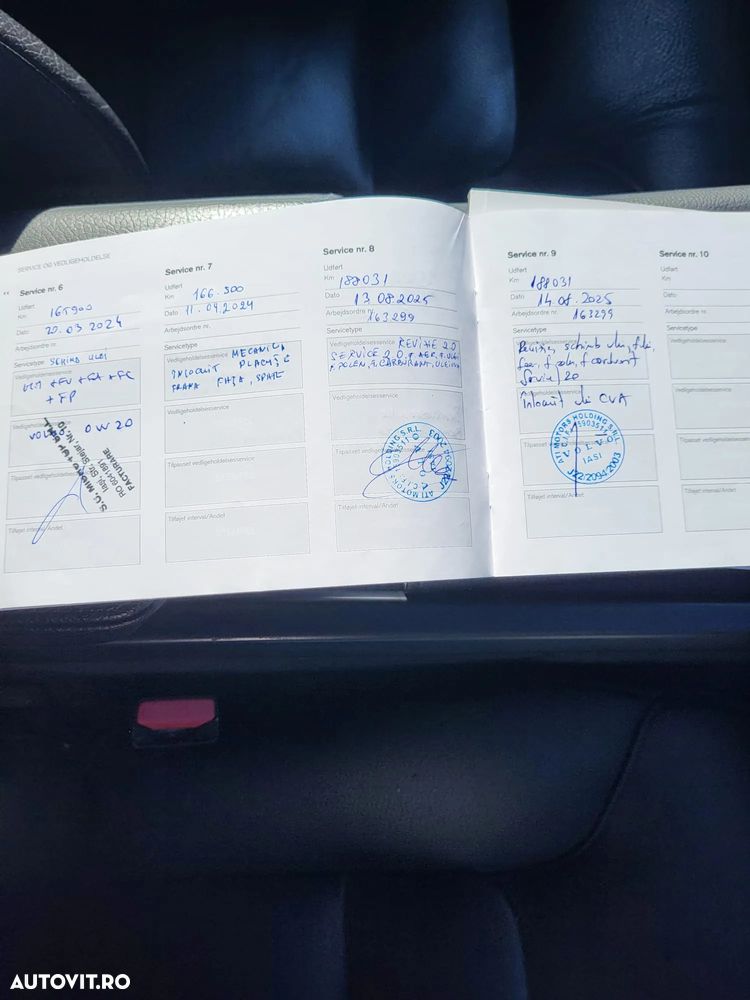 SERVICE OG VEDLIGEHOLDELSE
Service nr. 6
Udført
Km 165900
Dato 20.03 2024
Arbejdsordre nr.
Servicetype SCHIMB ULEI
Vedligeholdelsesservice
+ FP
VOLVO 0W20
S.C.
Iași, Str.
RO
FACTURARE
Tilføjet interval/Andet
Service nr. 7
Udført
Km 166.300
Dato 11.04.2024
Arbejdsordre nr.
Servicetype MECANICA
Vedligeholdelsesservice
INLOCUIT PLACUTE
FRANA FATA, SPATE
Vedligeholdelsesservice
Tilpasset vedligeholdelsesservice
Tilføjet interval/Andet
Service nr. 8
Udført
Km 188031
Dato 13.08.2025
Arbejdsordre nr. 163299
Servicetype
Vedligeholdelsesservice REVIZIE 20
SERVICE 20, F. AER, F. ULEI
F. POLEN, F. CARBURANT, ULEI
Vedligeholdelsesservice
Tilpasset vedligeholdelsesservice
ATI MOTORS HOLDING S.R.L.
Tilføjet interval/Andet
Service nr. 9
Udført
Km 188031
Dato 14.08.2025
Arbejdsordre nr. 163299
Servicetype
Revizie, schimb ulei, f. ulei,
f aer, f polen, f carburant
Service 20
Înlocuit ulei CVA
ATI MOTORS HOLDING S.R.L.
VOLVO
IASI
J22/2094/2003
Tilføjet interval/Andet
Service nr. 10
Udført
Km
Dato
Arbejdsordre nr.
Servicetype
Vedligeholdelsesservice
Vedligeholdelsesservice
Tilpasset vedligeholdelsesservice
Tilføjet interval/Andet
AUTOVIT.RO